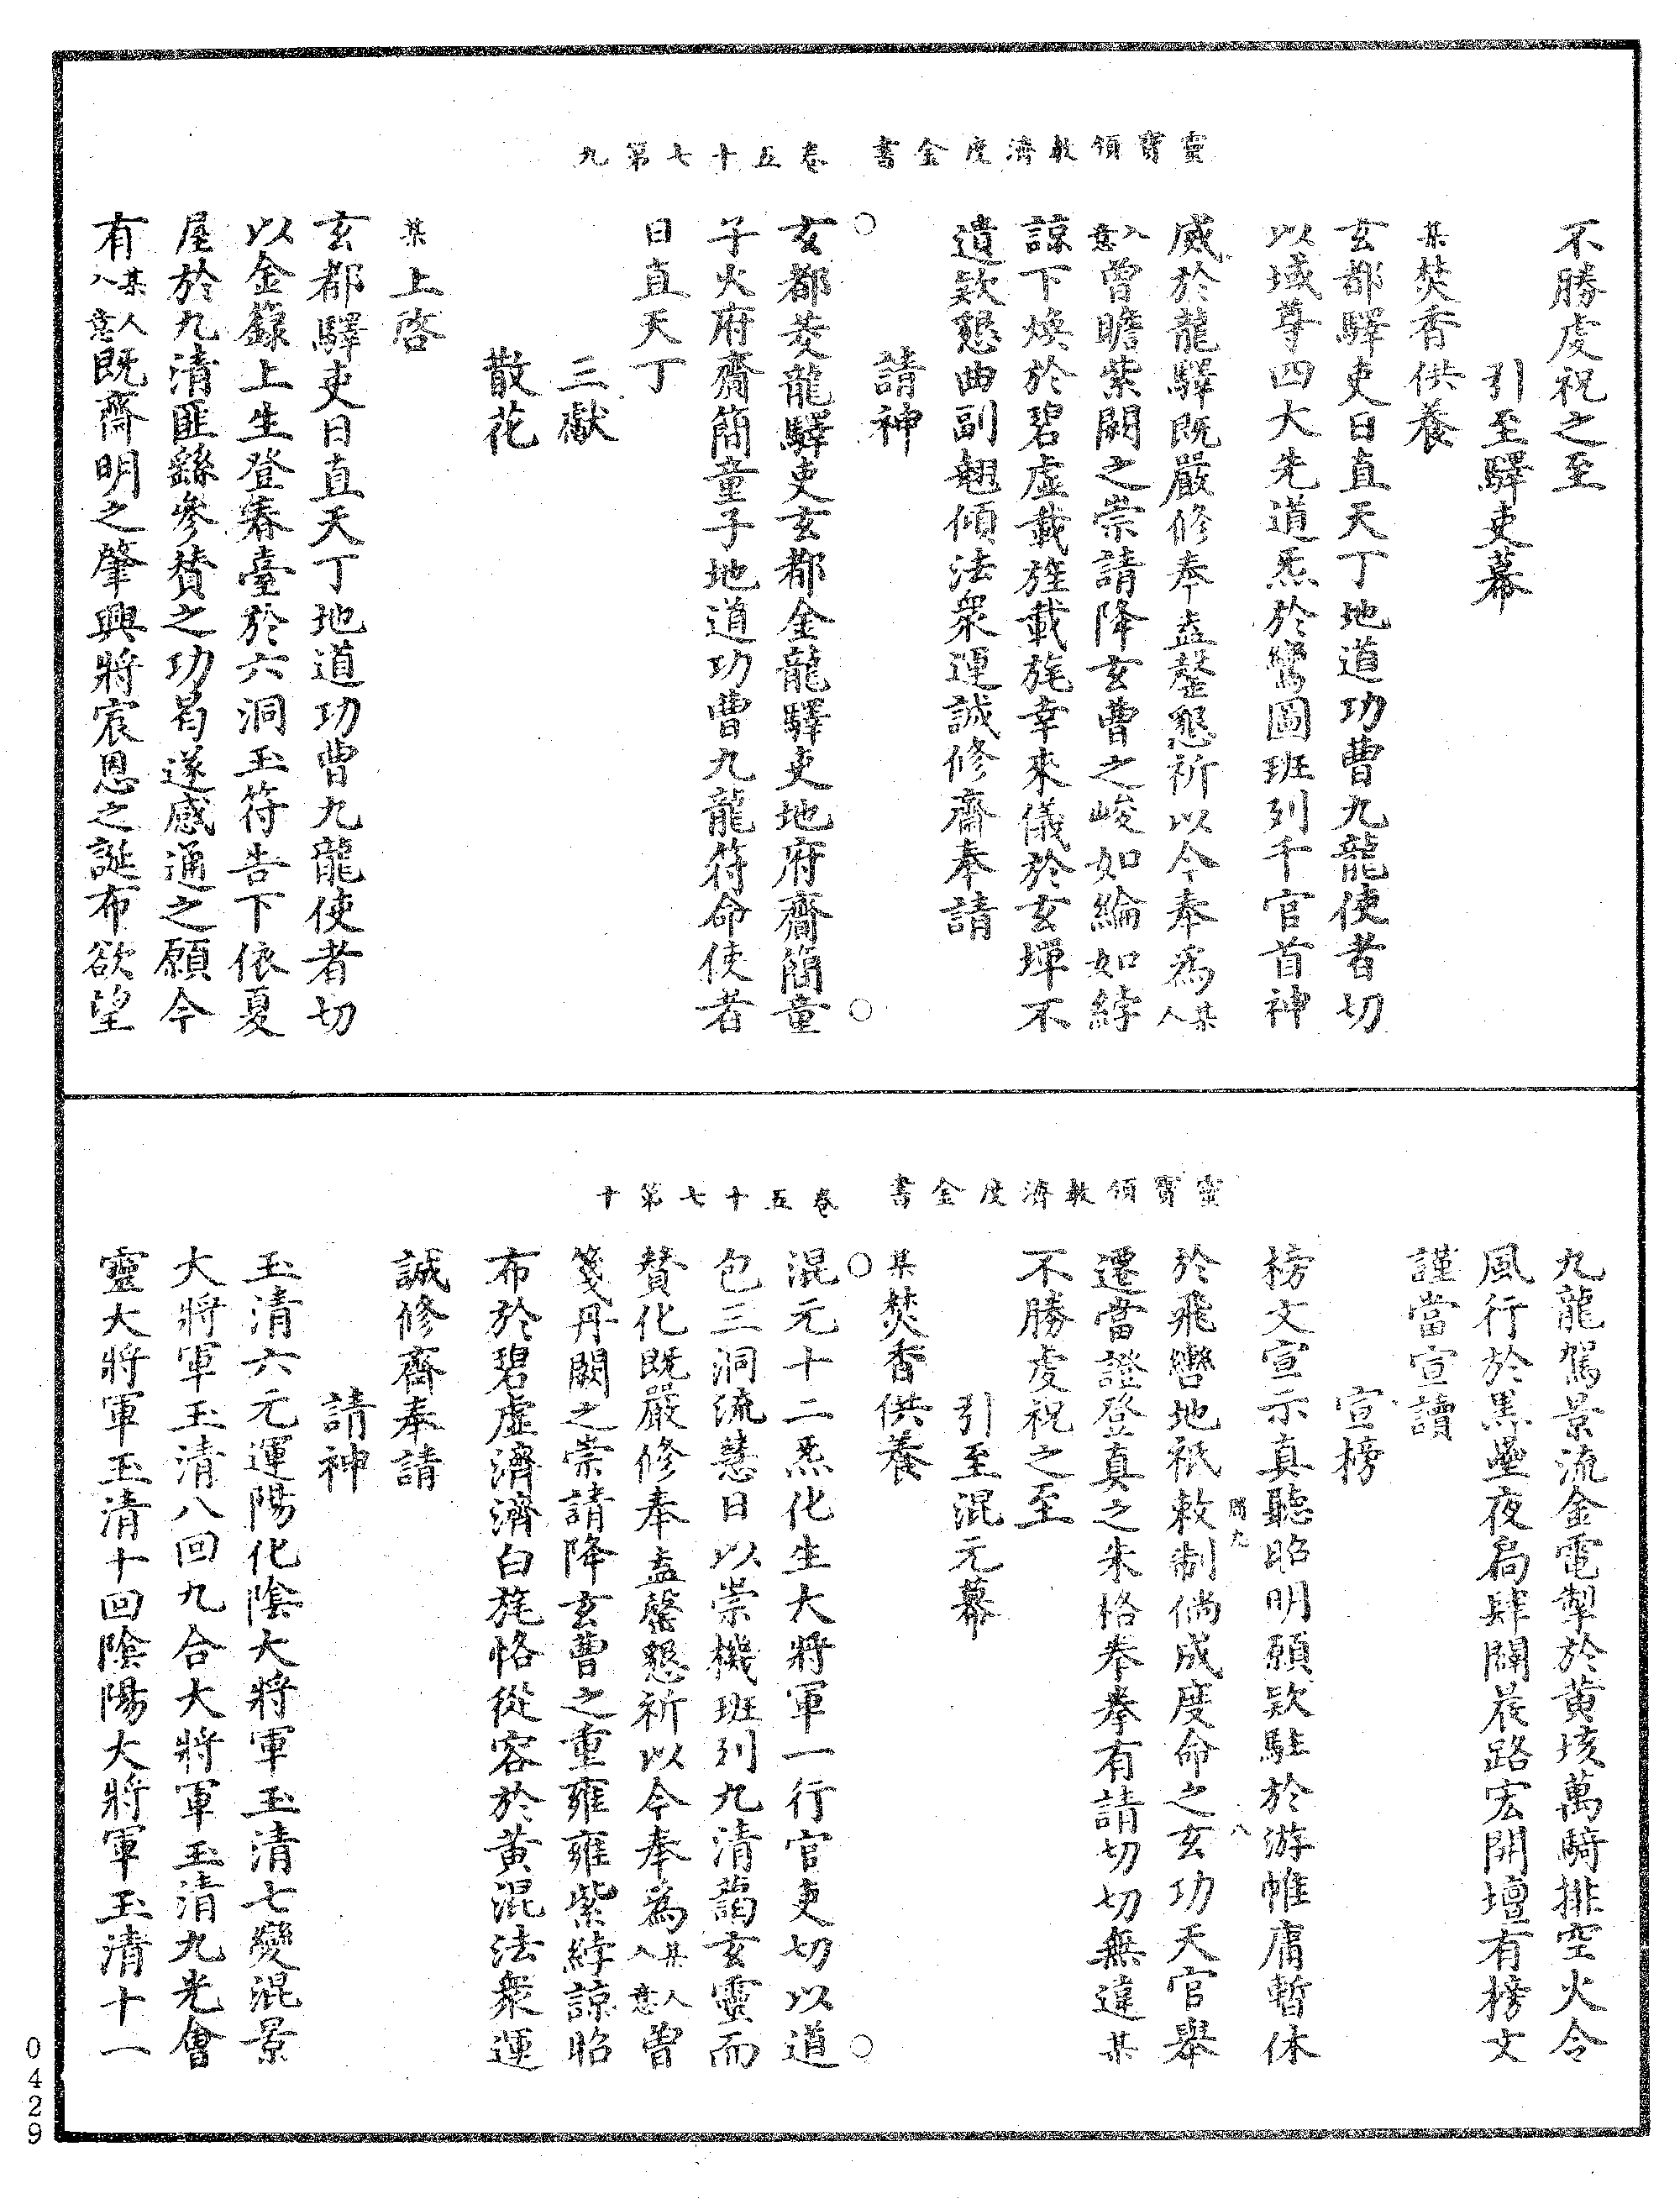 靈寶領教濟度金書　卷五十七第九
不勝虔祝之至
引至驛吏幕
某焚香供養
玄都驛吏日直天丁地道功曹九龍使者切
以域尊四大先道炁於鸞圖班列千官首神
威於龍驛既嚴修奉盍罄懇祈以今奉為某人
入意曾瞻紫闕之崇請降玄曹之峻如綸如綍
諒下煥於碧虛載旌載旄幸來儀於玄墠不
遺欵懇曲副翹傾法眾運誠修齋奉請
請神
○玄都茭龍驛吏玄都金龍驛吏地府齋簡童○
子火府齋簡童子地道功曹九龍符命使者
日直天丁
三獻
散花
某上啓
玄都驛吏日直天丁地道功曹九龍使者切
以金籙上生登春臺於六洞玉符告下依夏
屋於九清匪繇參贊之功曷遂感通之願今
有某人入意既齋明之肇興將宸恩之誕布欲望
靈寶領教濟度金書　卷五十七第十
九龍駕景流金電掣於黃垓萬騎排空火令
風行於黑壘夜扃肆闢晨路宏開壇有榜文
謹當宣讀
宣榜
榜文宣示真聽昭明願欵駐於游帷庸暫休
於飛轡地祇敕制倘成度命之玄功天官舉
遷當證登真之朱格拳拳有請切切無違某
不勝虔祝之至
引至混元幕
某焚香供養
○混元十二炁化生大將軍一行官吏切以道○
包三洞流慧日以崇機班列九清藹玄靈而
贊化既嚴修奉盍罄懇祈以今奉為某人入意曾
箋丹闕之崇請降玄曹之重雍雍紫綍諒昭
布於碧虛濟濟白旄恪從容於黃混法眾運
誠修齋奉請
請神
玉清六元運陽化陰大將軍玉清七變混景
大將軍玉清八回九合大將軍玉清九光會
靈大將軍玉清十回陰陽大將軍玉清十一
0429